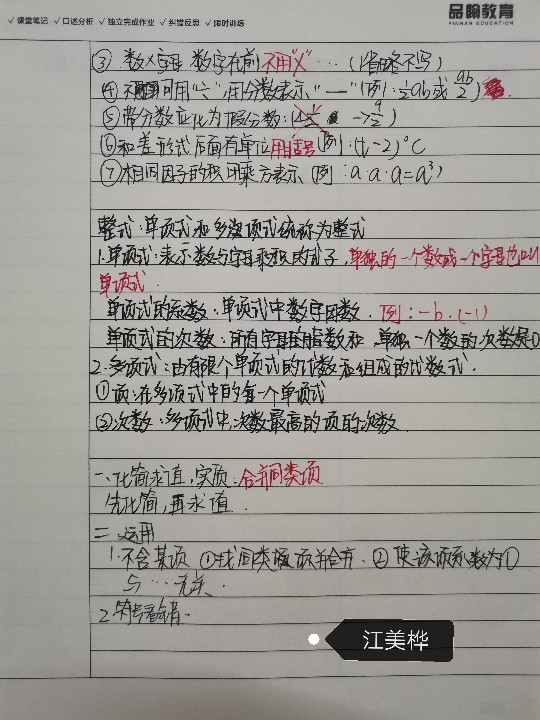 √课堂笔记 √口述分析 √独立完成作业 √纠错反思 √限时训练
品翰教育
PINHAN EDUCATION
③ 数×字母 数字在前 不用"×"…(省略不写)
④ 不可用"÷"用分数表示"—"(例:½ab或ab/2)
⑤带分数应化为假分数:
⑥和差形式后面有单位用括号(例:(t-2)°C
⑦相同因子的积可乘方表示(例:a·a·a=a³)
整式:单项式和多项式统称为整式
1.单项式:表示数与字母乘积的式子,单独的一个数或一个字母也叫
单项式.
单项式的系数:单项式中数字因数. 例:-b.(-1)
单项式的次数:所有字母的指数和,单独一个数的次数是0
2.多项式:由有限个单项式的代数和组成的代数式.
①项:在多项式中的每一个单项式
②次数:多项式中,次数最高的项的次数.
一.化简求值,实质:合并同类项
先化简,再求值.
二.运用
1.不含某项 ①找同类项并合并.②使该项系数为0
与…无关.
2.符号看错.
江美桦